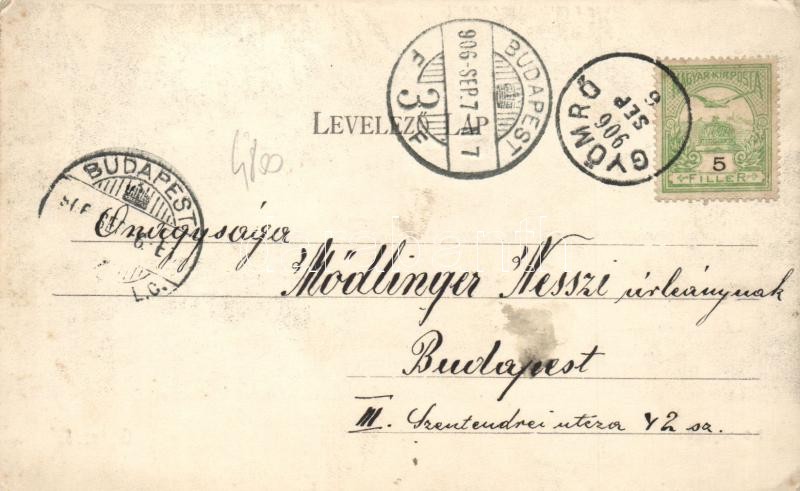 BUDAPEST
906-SEP.7
F 3 F
GYÖMRŐ
906
SEP
6
MAGYAR·KIR·POSTA
5
FILLER
LEVELEZŐ LAP
4800
BUDAPEST
L.C.
Őnagysága
Mödlinger Nesszi úrleánynak
Budapest
III. Szentendrei utcza 42 sz.